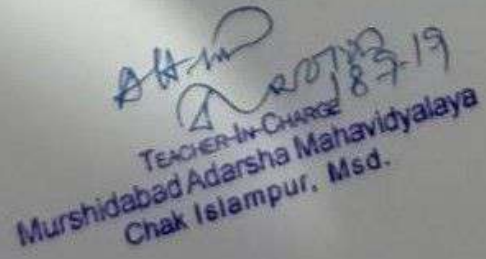 18-7-19
TEACHER-IN-CHARGE
Murshidabad Adarsha Mahavidyalaya
Chak Islampur, Msd.